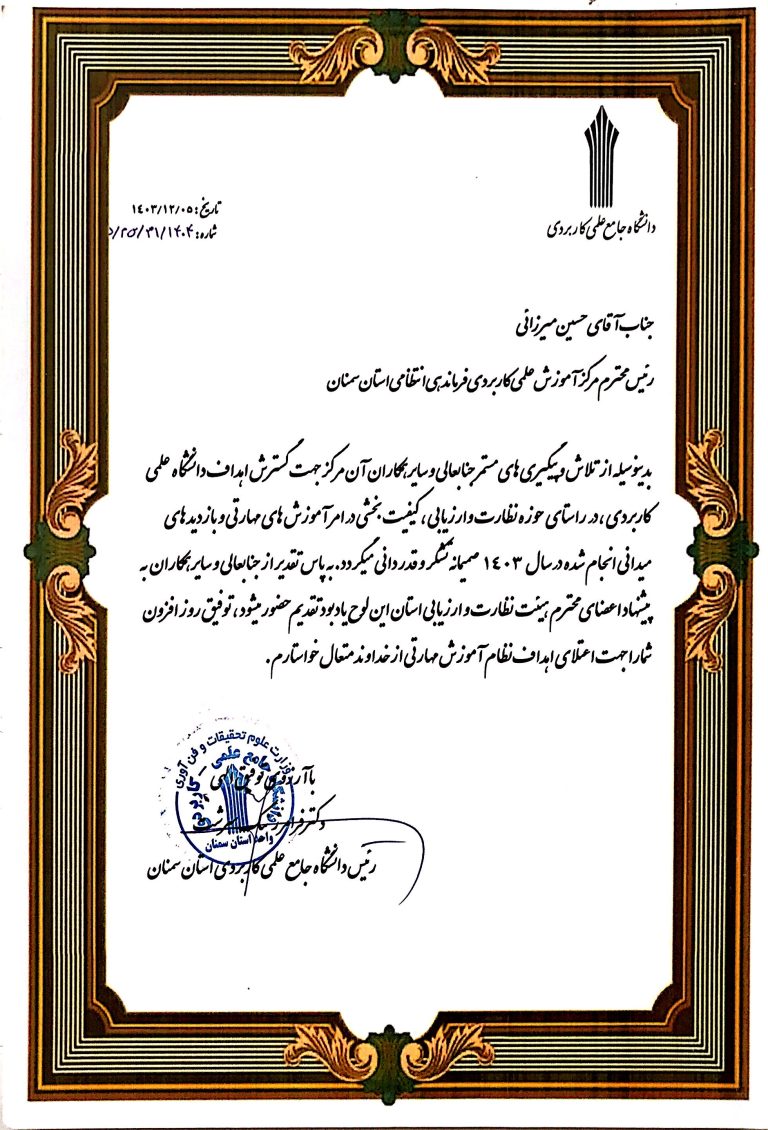 دانشگاه جامع علمی کاربردی
تاریخ: ۱۴۰۳/۱۲/۰۵
شماره:
جناب آقای حسین میرزائی
رئیس محترم مرکز آموزش علمی کاربردی فرماندهی انتظامی استان سمنان
بدینوسیله از تلاش و پیگیری های مستمر جنابعالی و سایر همکاران آن مرکز جهت گسترش اهداف دانشگاه علمی
کاربردی، در راستای حوزه نظارت و ارزیابی، کیفیت بخشی در امر آموزش های مهارتی و بازدید های
میدانی انجام شده در سال ۱۴۰۳ صمیمانه تشکر و قدردانی میگردد. به پاس تقدیر از جنابعالی و سایر همکاران به
پیشنهاد اعضای محترم هیئت نظارت و ارزیابی استان این لوح یادبود تقدیم حضور میشود، توفیق روز افزون
شما را جهت اعتلای اهداف نظام آموزش مهارتی از خداوند متعال خواستارم.
با آرزوی توفیق الهی
دکتر
رئیس دانشگاه جامع علمی کاربردی استان سمنان
وزارت علوم تحقیقات و فن آوری
دانشگاه جامع علمی - کاربردی
واحد استان سمنان